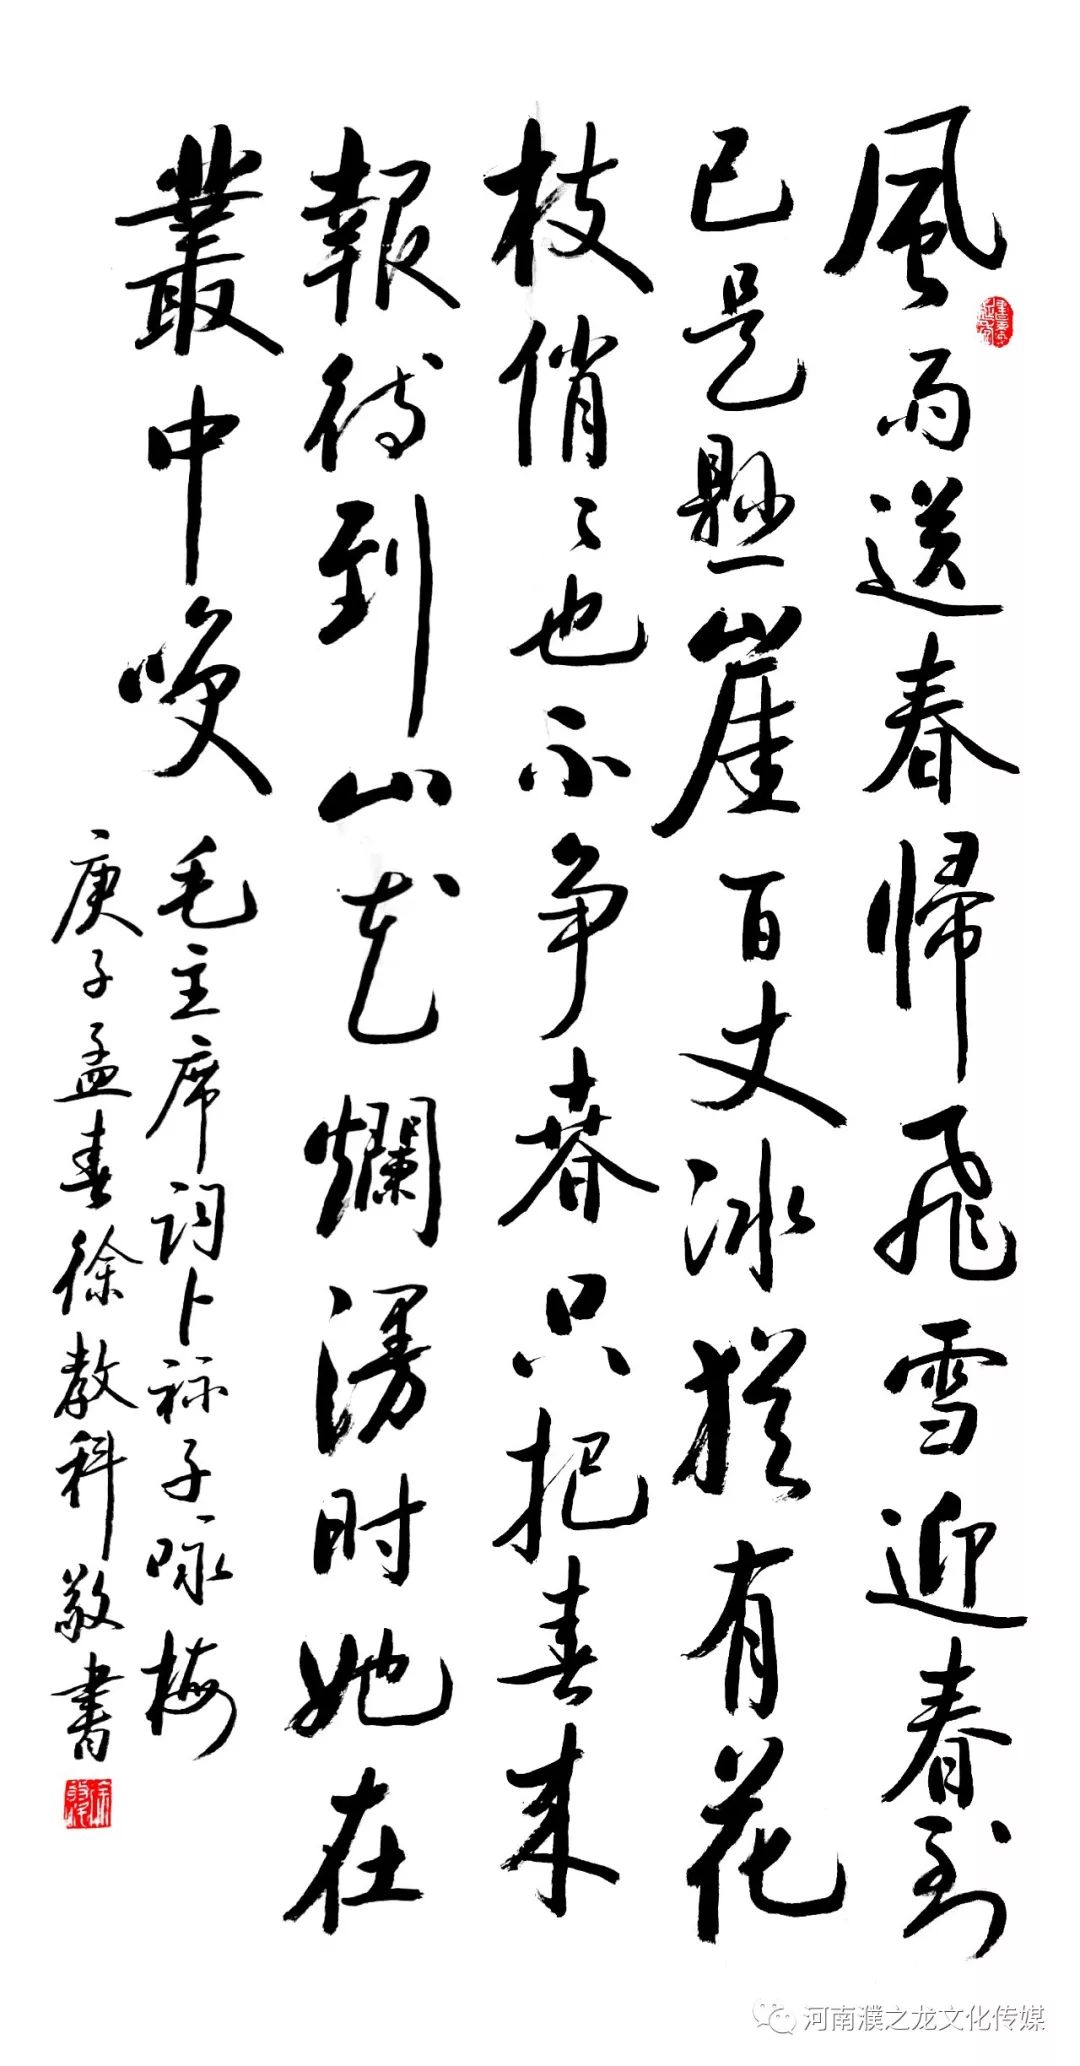 風雨送春帰飛雪迎春到
已是懸崖百丈冰猶有花
枝俏々也不争春只把春来
報待到山花爛漫时她在
叢中咲
毛主席词卜祘子咏梅
庚子孟春徐教科敬書
河南濮之龙文化传媒